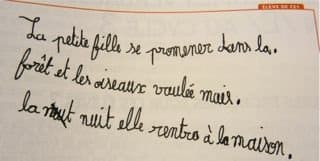 ÉLÈVE DE CE1
La petite fille se promener dans la.
forêt et les oiseaux voulée mais.
la nuit elle rentra à la maison.